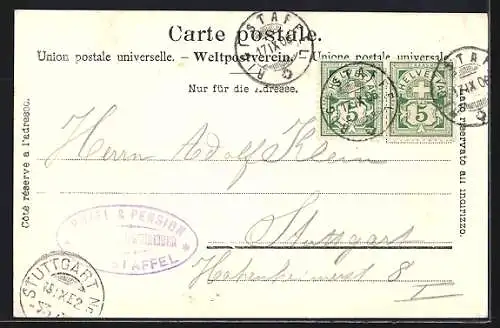 Carte postale.
Union postale universelle. – Weltpostverein. – Unione postale universale.
RIGI STAFFEL
17.IX.06
RIGI STAFFEL
17.IX.06
RIGI STAFFEL
17.IX.06
HELVETIA
5 5
Nur für die Adresse.
Côté réservé à l'adresse.
Lato riservato all'indirizzo.
Herrn Adolf Klein
Stuttgart
Hohenheimerstr 8 I
HOTEL & PENSION
STAFFEL
STUTTGART